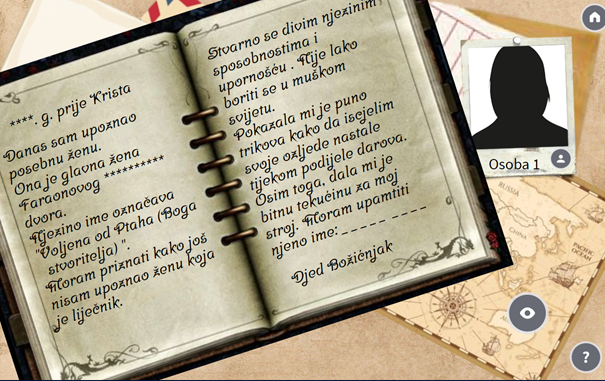 ****. g. prije Krista
Danas sam upoznao
posebnu ženu.
Ona je glavna žena
Faraonovog **********
dvora.
Njezino ime označava
"Voljena od Ptaha (Boga
stvoritelja) ".
Moram priznati kako još
nisam upoznao ženu koja
je liječnik.
Stvarno se divim njezinim
sposobnostima i
upornošću . Nije lako
boriti se u muškom
svijetu.
Pokazala mi je puno
trikova kako da iscjelim
svoje ozljede nastale
tijekom podijele darova.
Osim toga, dala mi je
bitnu tekućinu za moj
stroj. Moram upamtiti
njeno ime: _ _ _ _ _ _ _ _ _
Djed Božićnjak
Osoba 1
RUSSIA
CHINA
PACIFIC
OCEAN
?